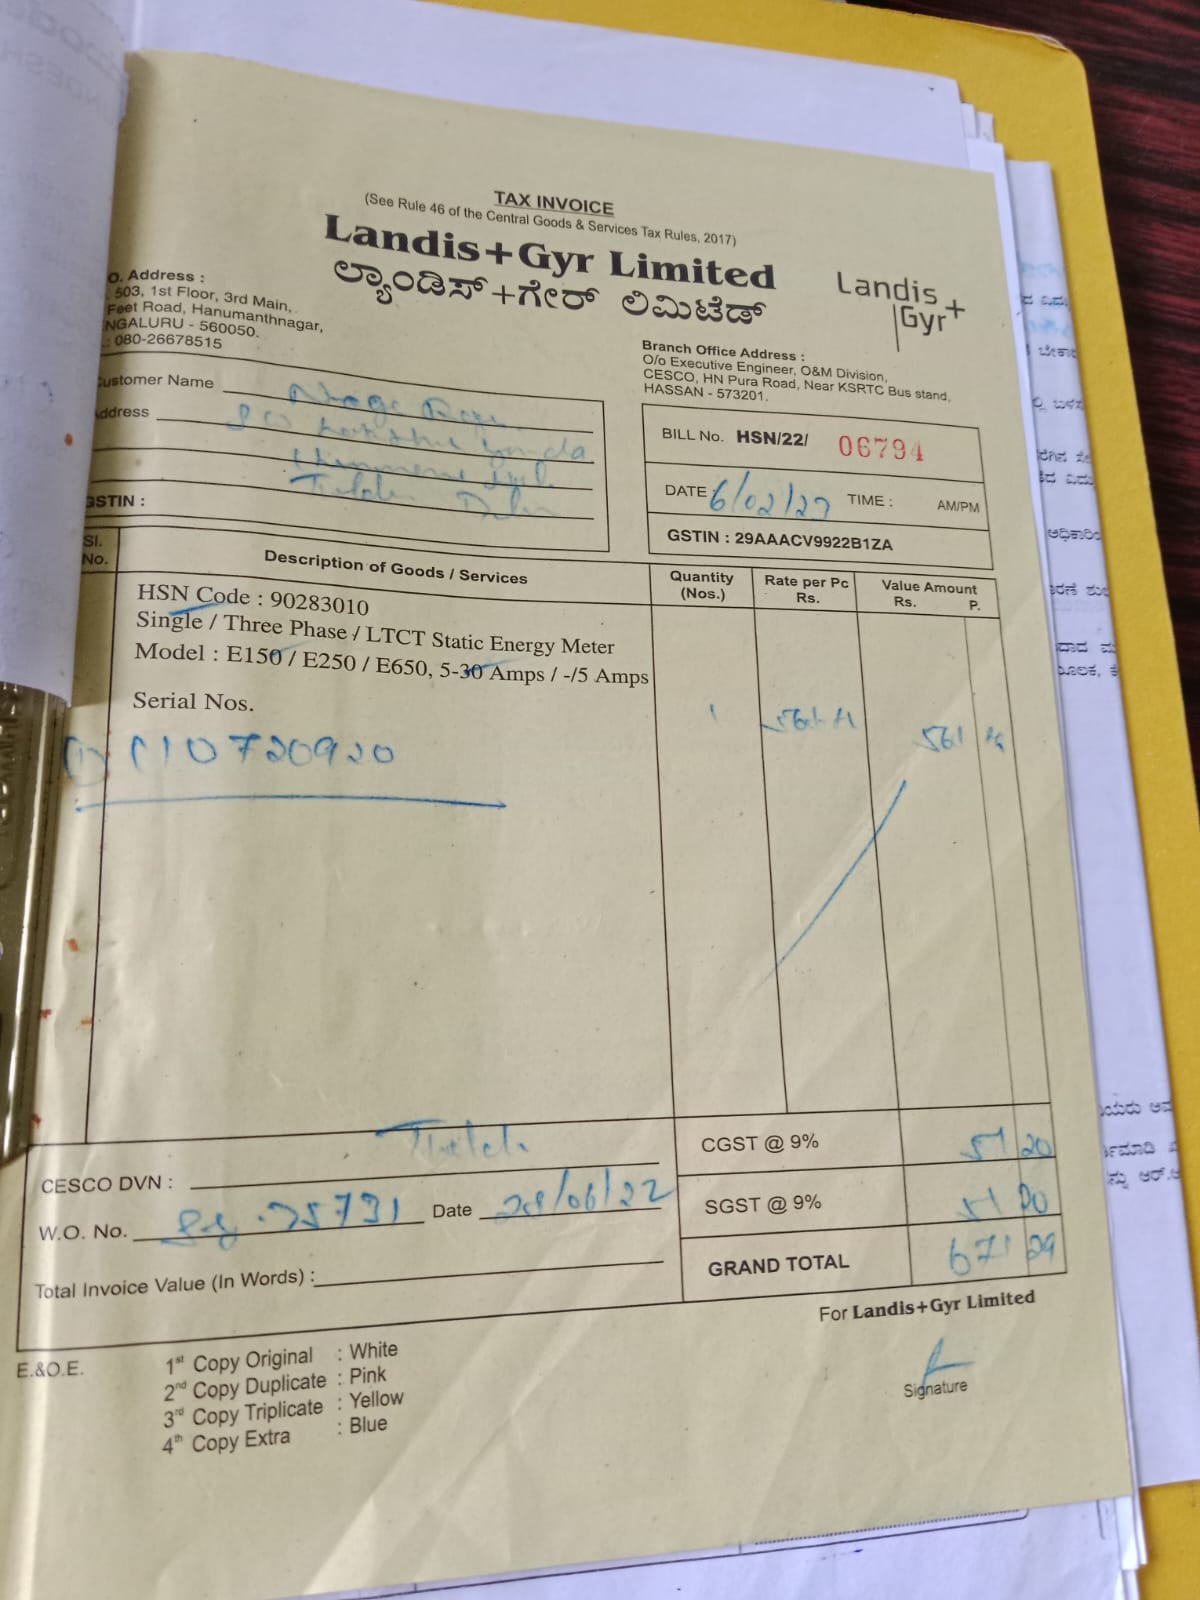 TAX INVOICE
(See Rule 46 of the Central Goods & Services Tax Rules, 2017)
Landis+Gyr Limited
ಲ್ಯಾಂಡಿಸ್+ಗೇರ್ ಲಿಮಿಟೆಡ್
Landis+
Gyr
O. Address :
503, 1st Floor, 3rd Main,
Feet Road, Hanumanthnagar,
NGALURU - 560050.
: 080-26678515
Branch Office Address :
O/o Executive Engineer, O&M Division,
CESCO, HN Pura Road, Near KSRTC Bus stand,
HASSAN - 573201.
Customer Name
Address
GSTIN :
BILL No. HSN/22/ 06794
DATE 6/02/23 TIME : AM/PM
GSTIN : 29AAACV9922B1ZA
Sl. No. Description of Goods / Services Quantity (Nos.) Rate per Pc Rs. Value Amount Rs. P.
HSN Code : 90283010
Single / Three Phase / LTCT Static Energy Meter
Model : E150 / E250 / E650, 5-30 Amps / -/5 Amps
Serial Nos.
1 561
10720920
CGST @ 9% 51 20
CESCO DVN :
W.O. No. 75791 Date 28/06/22
SGST @ 9% 51 20
Total Invoice Value (In Words) :
GRAND TOTAL 671 29
For Landis+Gyr Limited
Signature
E.&O.E.
1st Copy Original : White
2nd Copy Duplicate : Pink
3rd Copy Triplicate : Yellow
4th Copy Extra : Blue